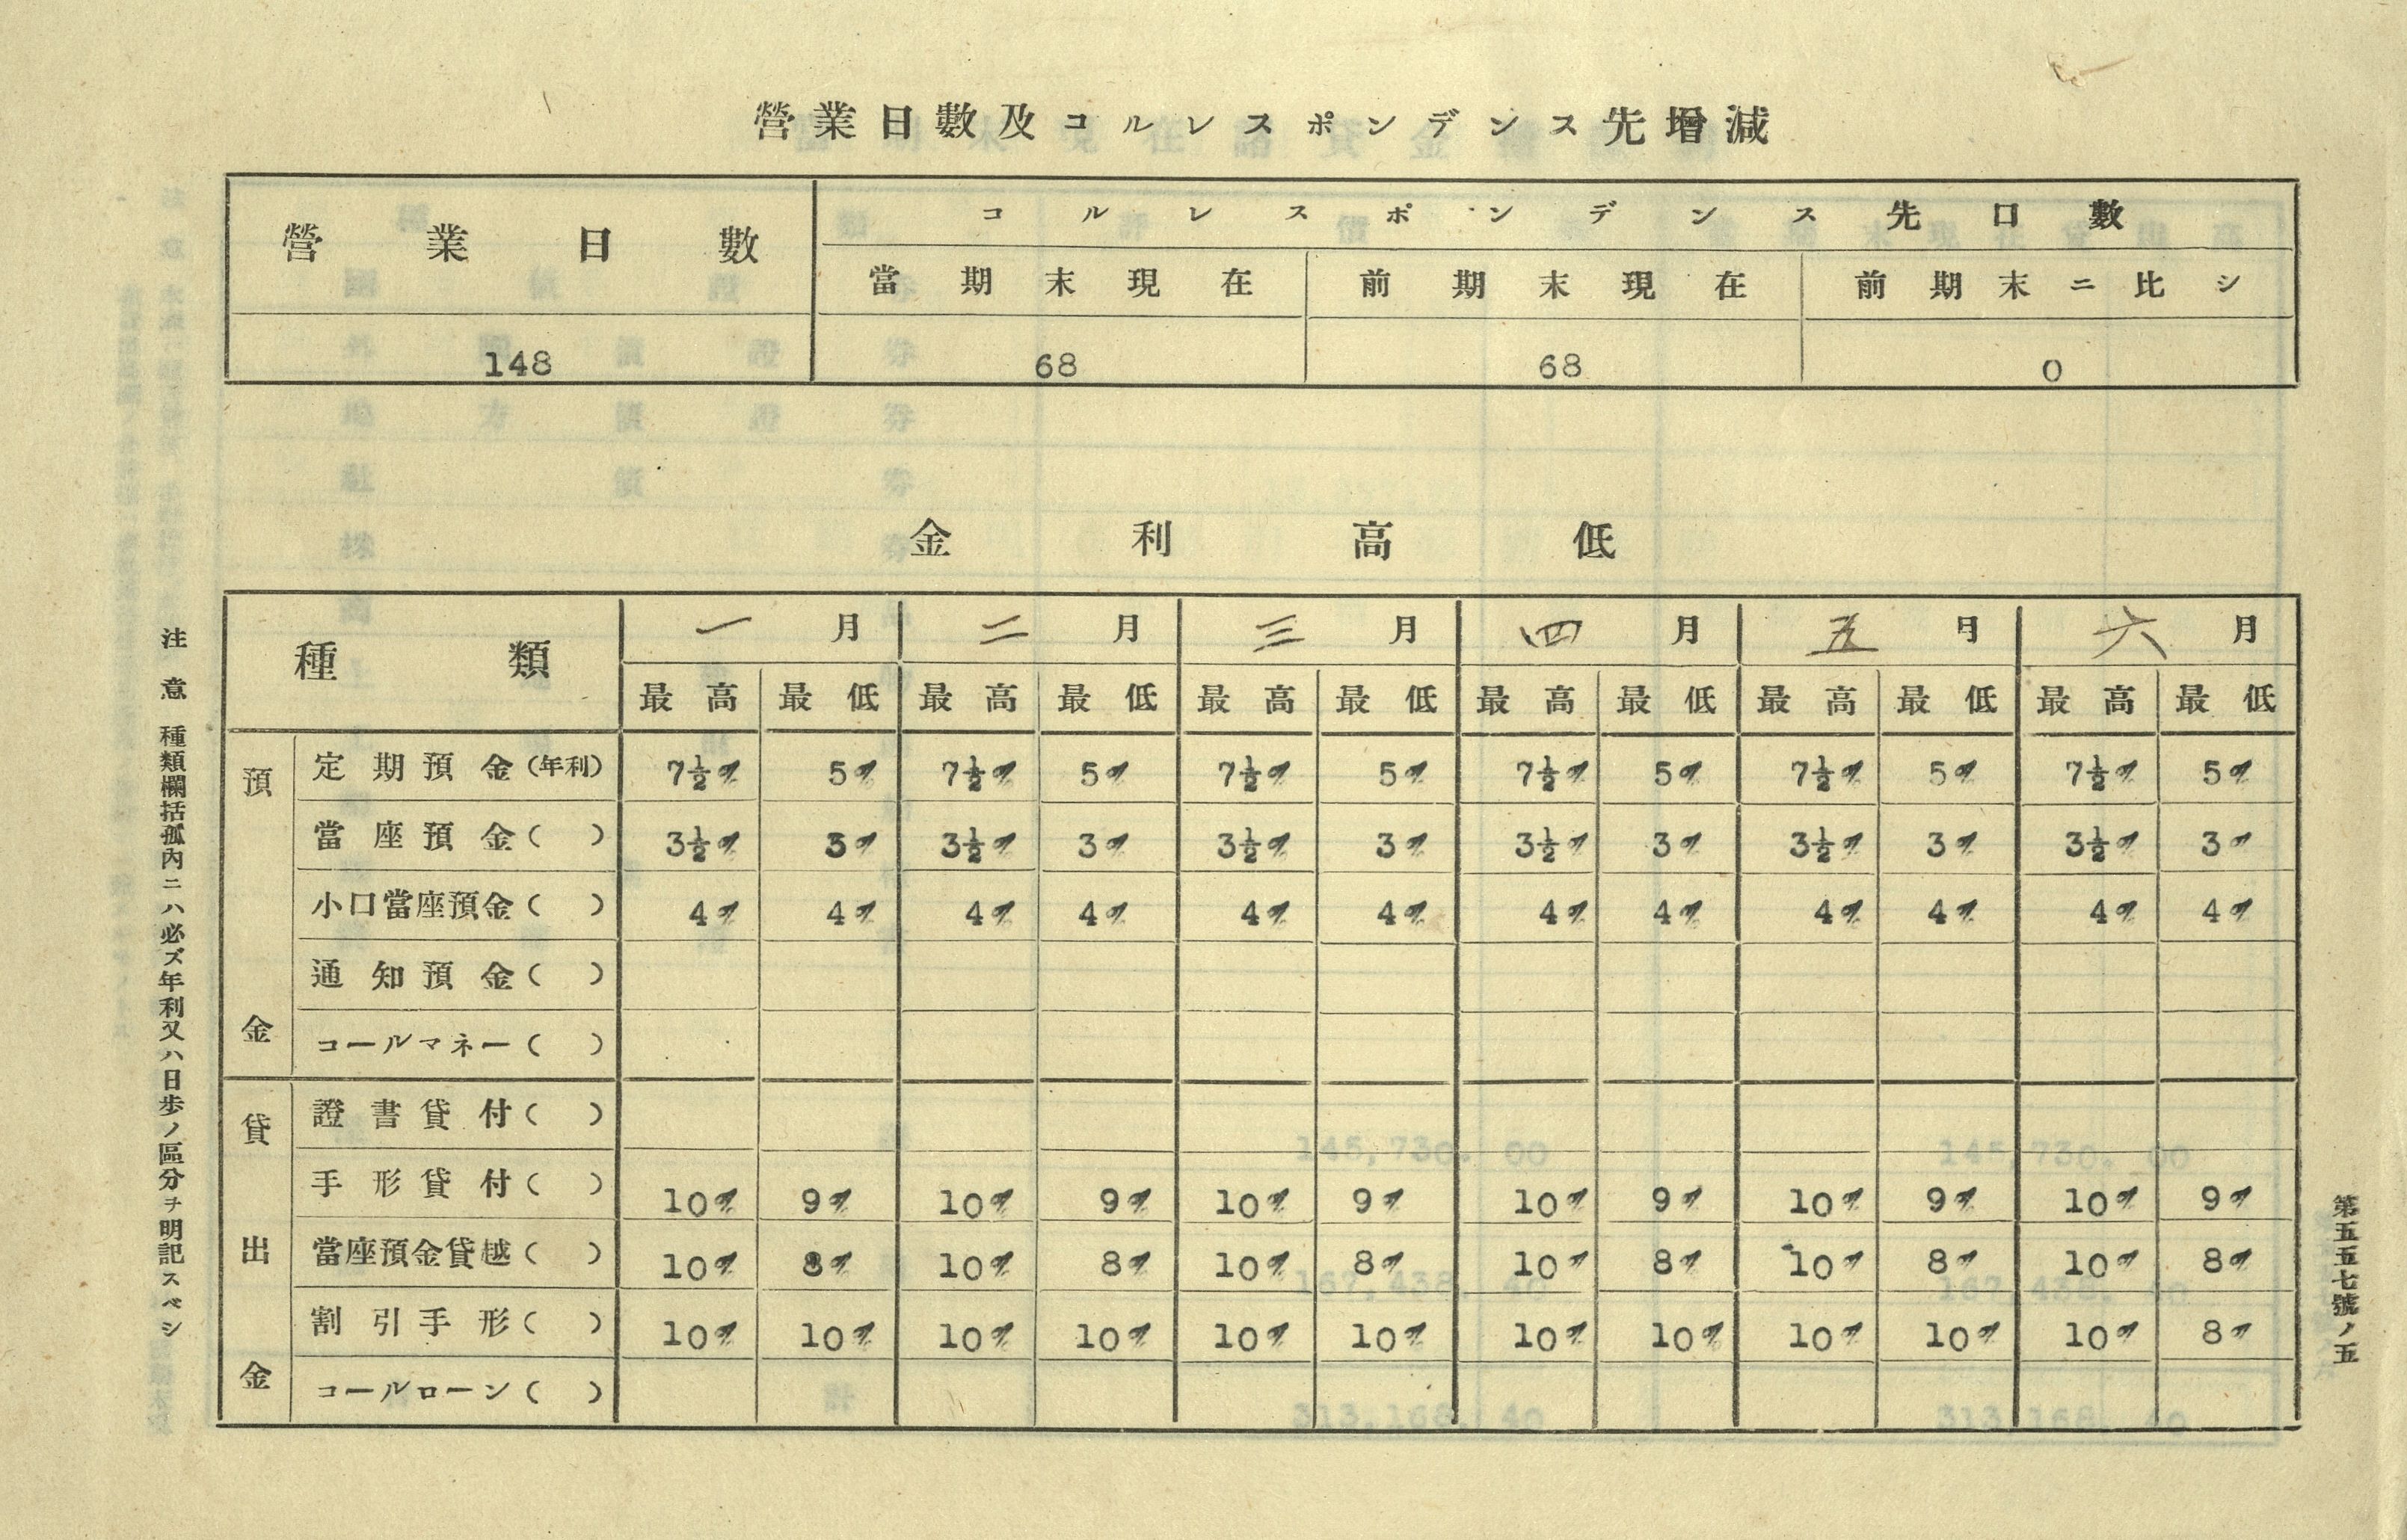 營業日數及コルレスポンデンス先增減
營業日數 コルレスポンデンス先口數
當期末現在 前期末現在 前期末ニ比シ
148 68 68 0
金利高低
種類 一月 二月 三月 四月 五月 六月
最高 最低 最高 最低 最高 最低 最高 最低 最高 最低 最高 最低
預金
定期預金(年利) 7½% 5% 7½% 5% 7½% 5% 7½% 5% 7½% 5% 7½% 5%
當座預金( ) 3½% 3% 3½% 3% 3½% 3% 3½% 3% 3½% 3% 3½% 3%
小口當座預金( ) 4% 4% 4% 4% 4% 4% 4% 4% 4% 4% 4% 4%
通知預金( )
コールマネー( )
貸出金
證書貸付( )
手形貸付( ) 10% 9% 10% 9% 10% 9% 10% 9% 10% 9% 10% 9%
當座預金貸越( ) 10% 8% 10% 8% 10% 8% 10% 8% 10% 8% 10% 8%
割引手形( ) 10% 10% 10% 10% 10% 10% 10% 10% 10% 10% 10% 8%
コールローン( )
注意 種類欄括孤內ニハ必ズ年利又ハ日步ノ區分ヲ明記スベシ
第五五七號ノ五